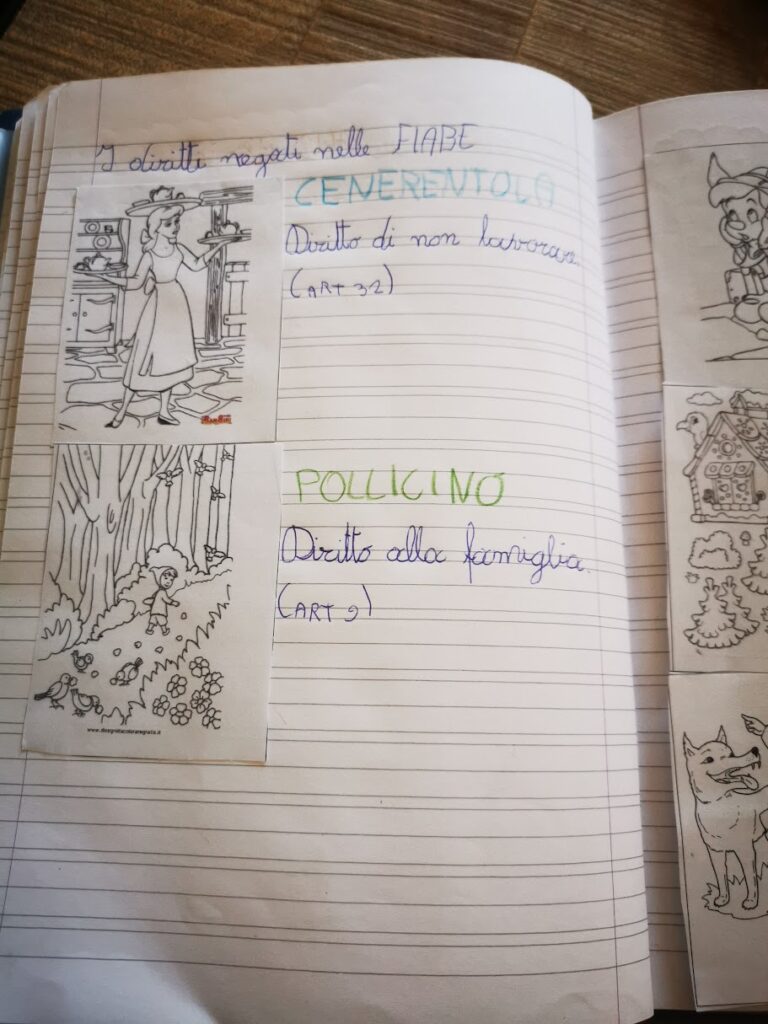 I diritti negati nelle FIABE
CENERENTOLA
Diritto di non lavorare.
(ART 32)
POLLICINO
Diritto alla famiglia.
(ART 9)
www.disegnidacoloraregratis.it